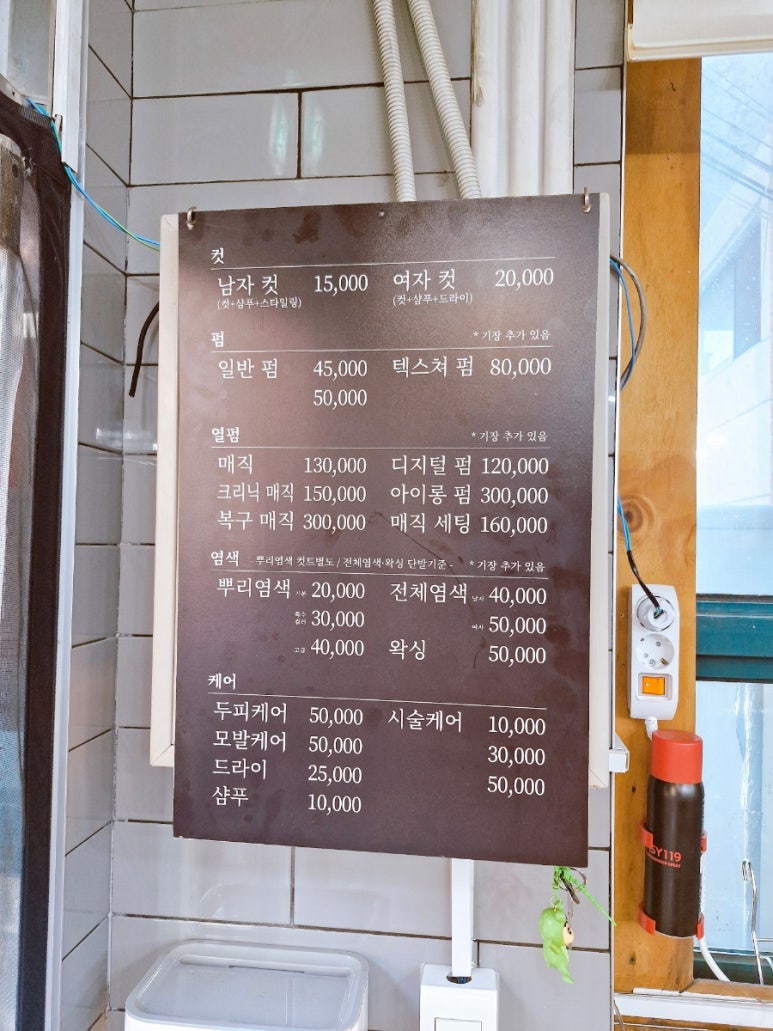 컷
남자 컷 15,000 여자 컷 20,000
(컷+샴푸+스타일링) (컷+샴푸+드라이)
펌 * 기장 추가 있음
일반 펌 45,000 텍스쳐 펌 80,000
50,000
열펌 * 기장 추가 있음
매직 130,000 디지털 펌 120,000
크리닉 매직 150,000 아이롱 펌 300,000
복구 매직 300,000 매직 세팅 160,000
염색 - 뿌리염색 컷트별도 / 전체염색·왁싱 단발기준 - * 기장 추가 있음
뿌리염색 기본 20,000 전체염색 남자 40,000
특수 컬러 30,000 여자 50,000
고급 40,000 왁싱 50,000
케어
두피케어 50,000 시술케어 10,000
모발케어 50,000 30,000
드라이 25,000 50,000
샴푸 10,000
SY119